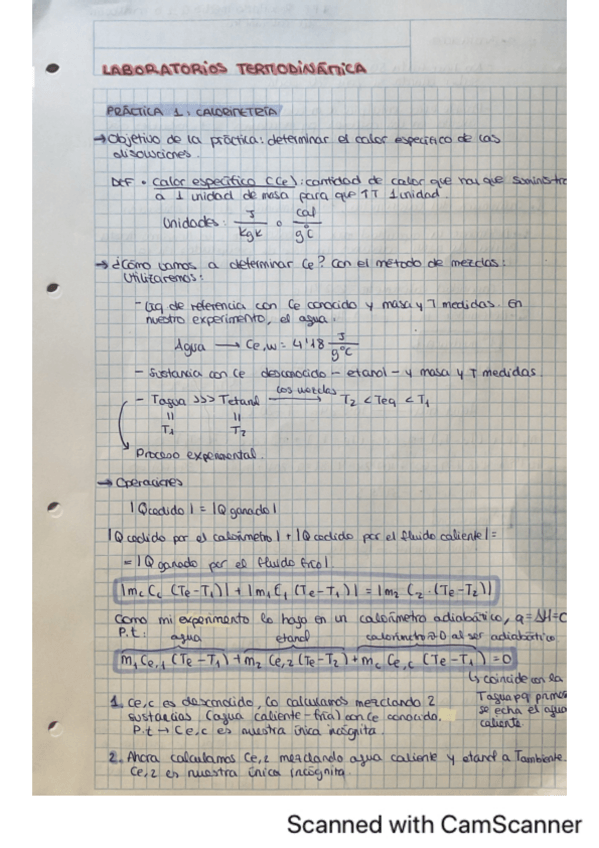 LABORATORIOS TERMODINÁMICA
PRÁCTICA 1: CALORIMETRÍA
→ Objetivo de la práctica: determinar el calor específico de las
disoluciones.
DEF • calor específico (Ce): cantidad de calor que hay que suministra
a 1 unidad de masa para que ↑T 1 unidad.
Unidades: J/kgK o cal/g°C
→ ¿Cómo vamos a determinar Ce? Con el método de mezclas:
Utilizaremos:
- Liq de referencia con Ce conocido y masa y T medidas. En
nuestro experimento, el agua.
Agua → Ce,w = 4'18 J/g°C
- Sustancia con Ce desconocido - etanol - y masa y T medidas
- Tagua >>> Tetanol los mezclas → T2 < Teq < T1
= =
T1 T2
Proceso experimental.
→ Operaciones
|Qcedido| = |Qganado|
|Q cedido por el calorímetro| + |Q cedido por el fluido caliente| =
= |Q ganado por el fluido frío|
|mc Cc (Te-T1)| + |m1 C1 (Te-T1)| = |m2 C2 · (Te-T2)|
Como mi experimento lo hago en un calorímetro adiabático, q = ΔH = 0
P.t: agua etanol calorímetro ≈ 0 al ser adiabático.
m1 Ce,1 (Te-T1) + m2 Ce,2 (Te-T2) + mc Ce,c (Te-T1) = 0
↳ coincide con la
Tagua pq primero
se echa el agua
caliente.
1. Ce,c es desconocido, lo calculamos mezclando 2
sustancias (agua caliente-fría) con Ce conocido.
P.t → Ce,c es nuestra única incógnita.
2. Ahora calculamos Ce,2 mezclando agua caliente y etanol a Tambiente.
Ce,2 es nuestra única incógnita.
Scanned with CamScanner